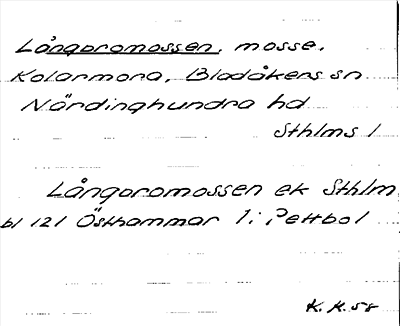 Långoromossen, mosse,
Kolarmora, Bladåkers sn
Närdinghundra hd
Sthlms l
Långoromossen ek Sthlm
bl 121 Östhammar 1: Pettbol
K. K. 58